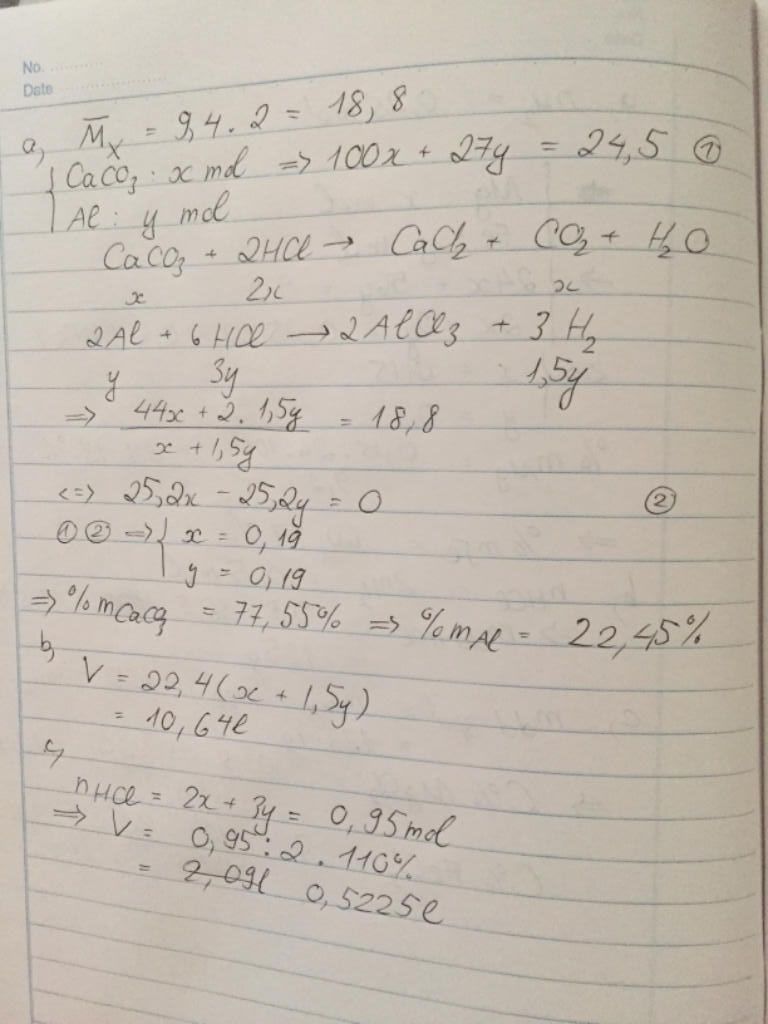 No.
Date
a, M̅_X = 9,4 . 2 = 18,8
{ CaCO₃ : x mol ⇒ 100x + 27y = 24,5 ①
Al : y mol
CaCO₃ + 2HCl → CaCl₂ + CO₂ + H₂O
x 2x x
2Al + 6HCl → 2AlCl₃ + 3H₂
y 3y 1,5y
⇒ (44x + 2. 1,5y)/(x + 1,5y) = 18,8
<=> 25,2x - 25,2y = 0 ②
① ② ⇒ { x = 0,19
y = 0,19
⇒ % m CaCO₃ = 77,55% ⇒ % m Al = 22,45%
b,
V = 22,4(x + 1,5y)
= 10,64l
c,
nHCl = 2x + 3y = 0,95mol
⇒ V = 0,95 : 2 . 110%
= ~~2,09l~~ 0,5225l